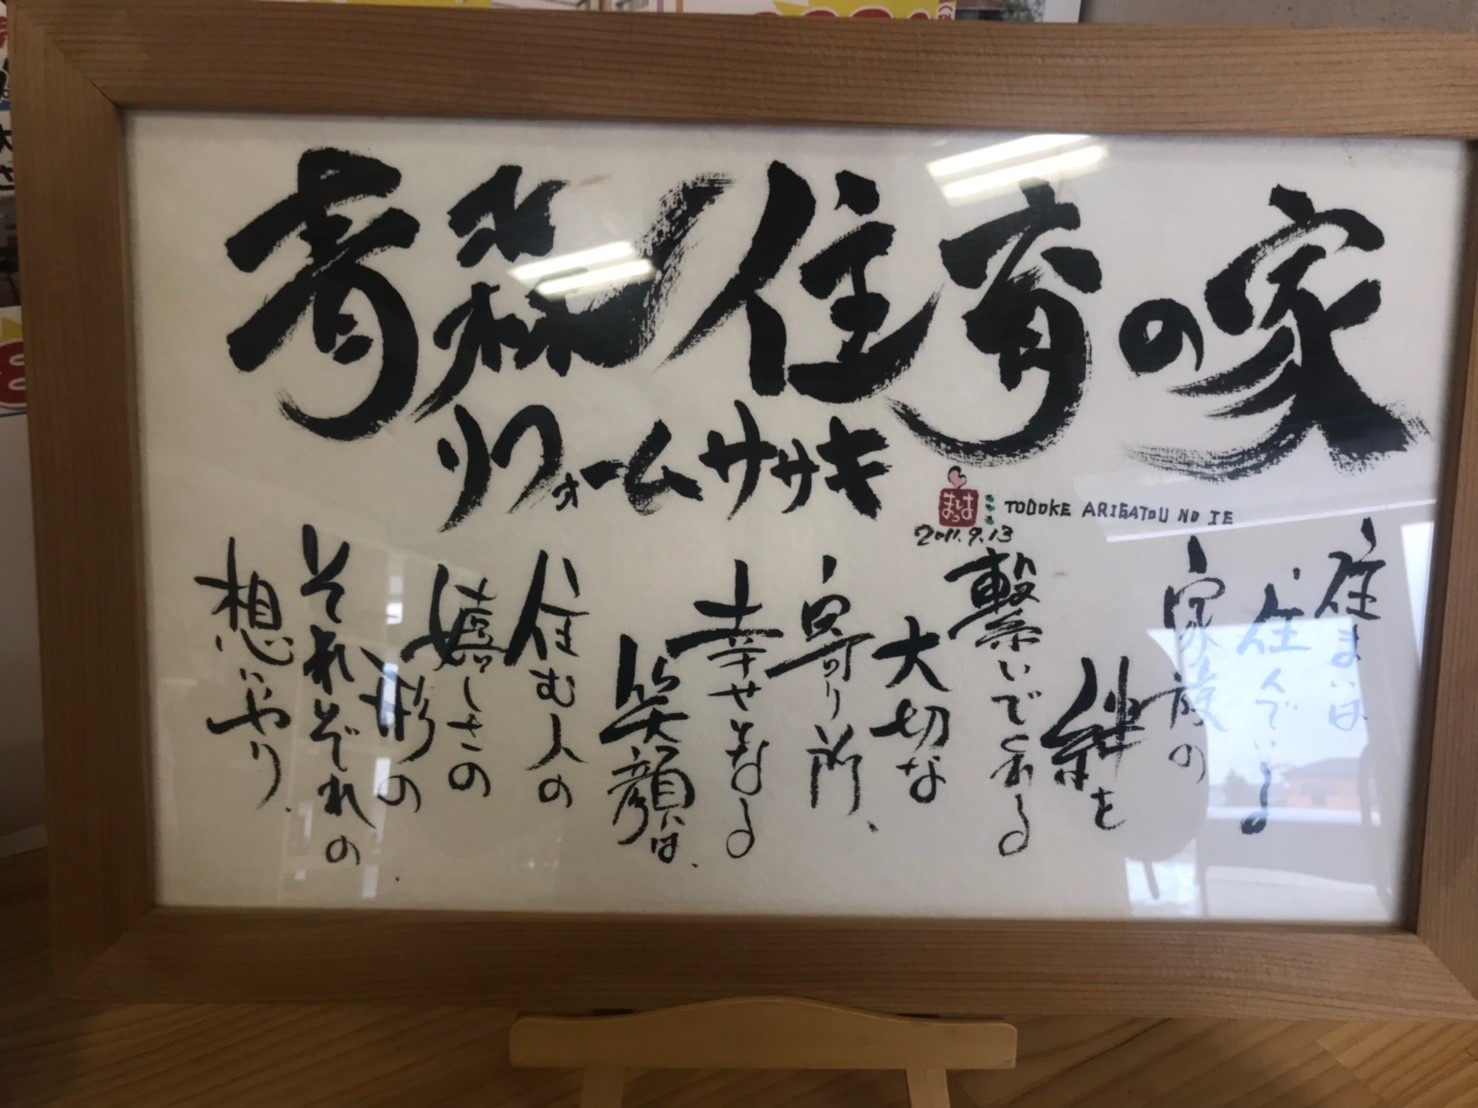 青森住育の家
リフォームササキ
TODOKE ARIGATOU NO IE
2011.9.13
住まいは
住んでいる
家族の
絆を
繋いでくれる
大切な
寄り所、
幸せなる
笑顔は、
住む人の
嬉しさの
形の
それぞれの
想いやり、